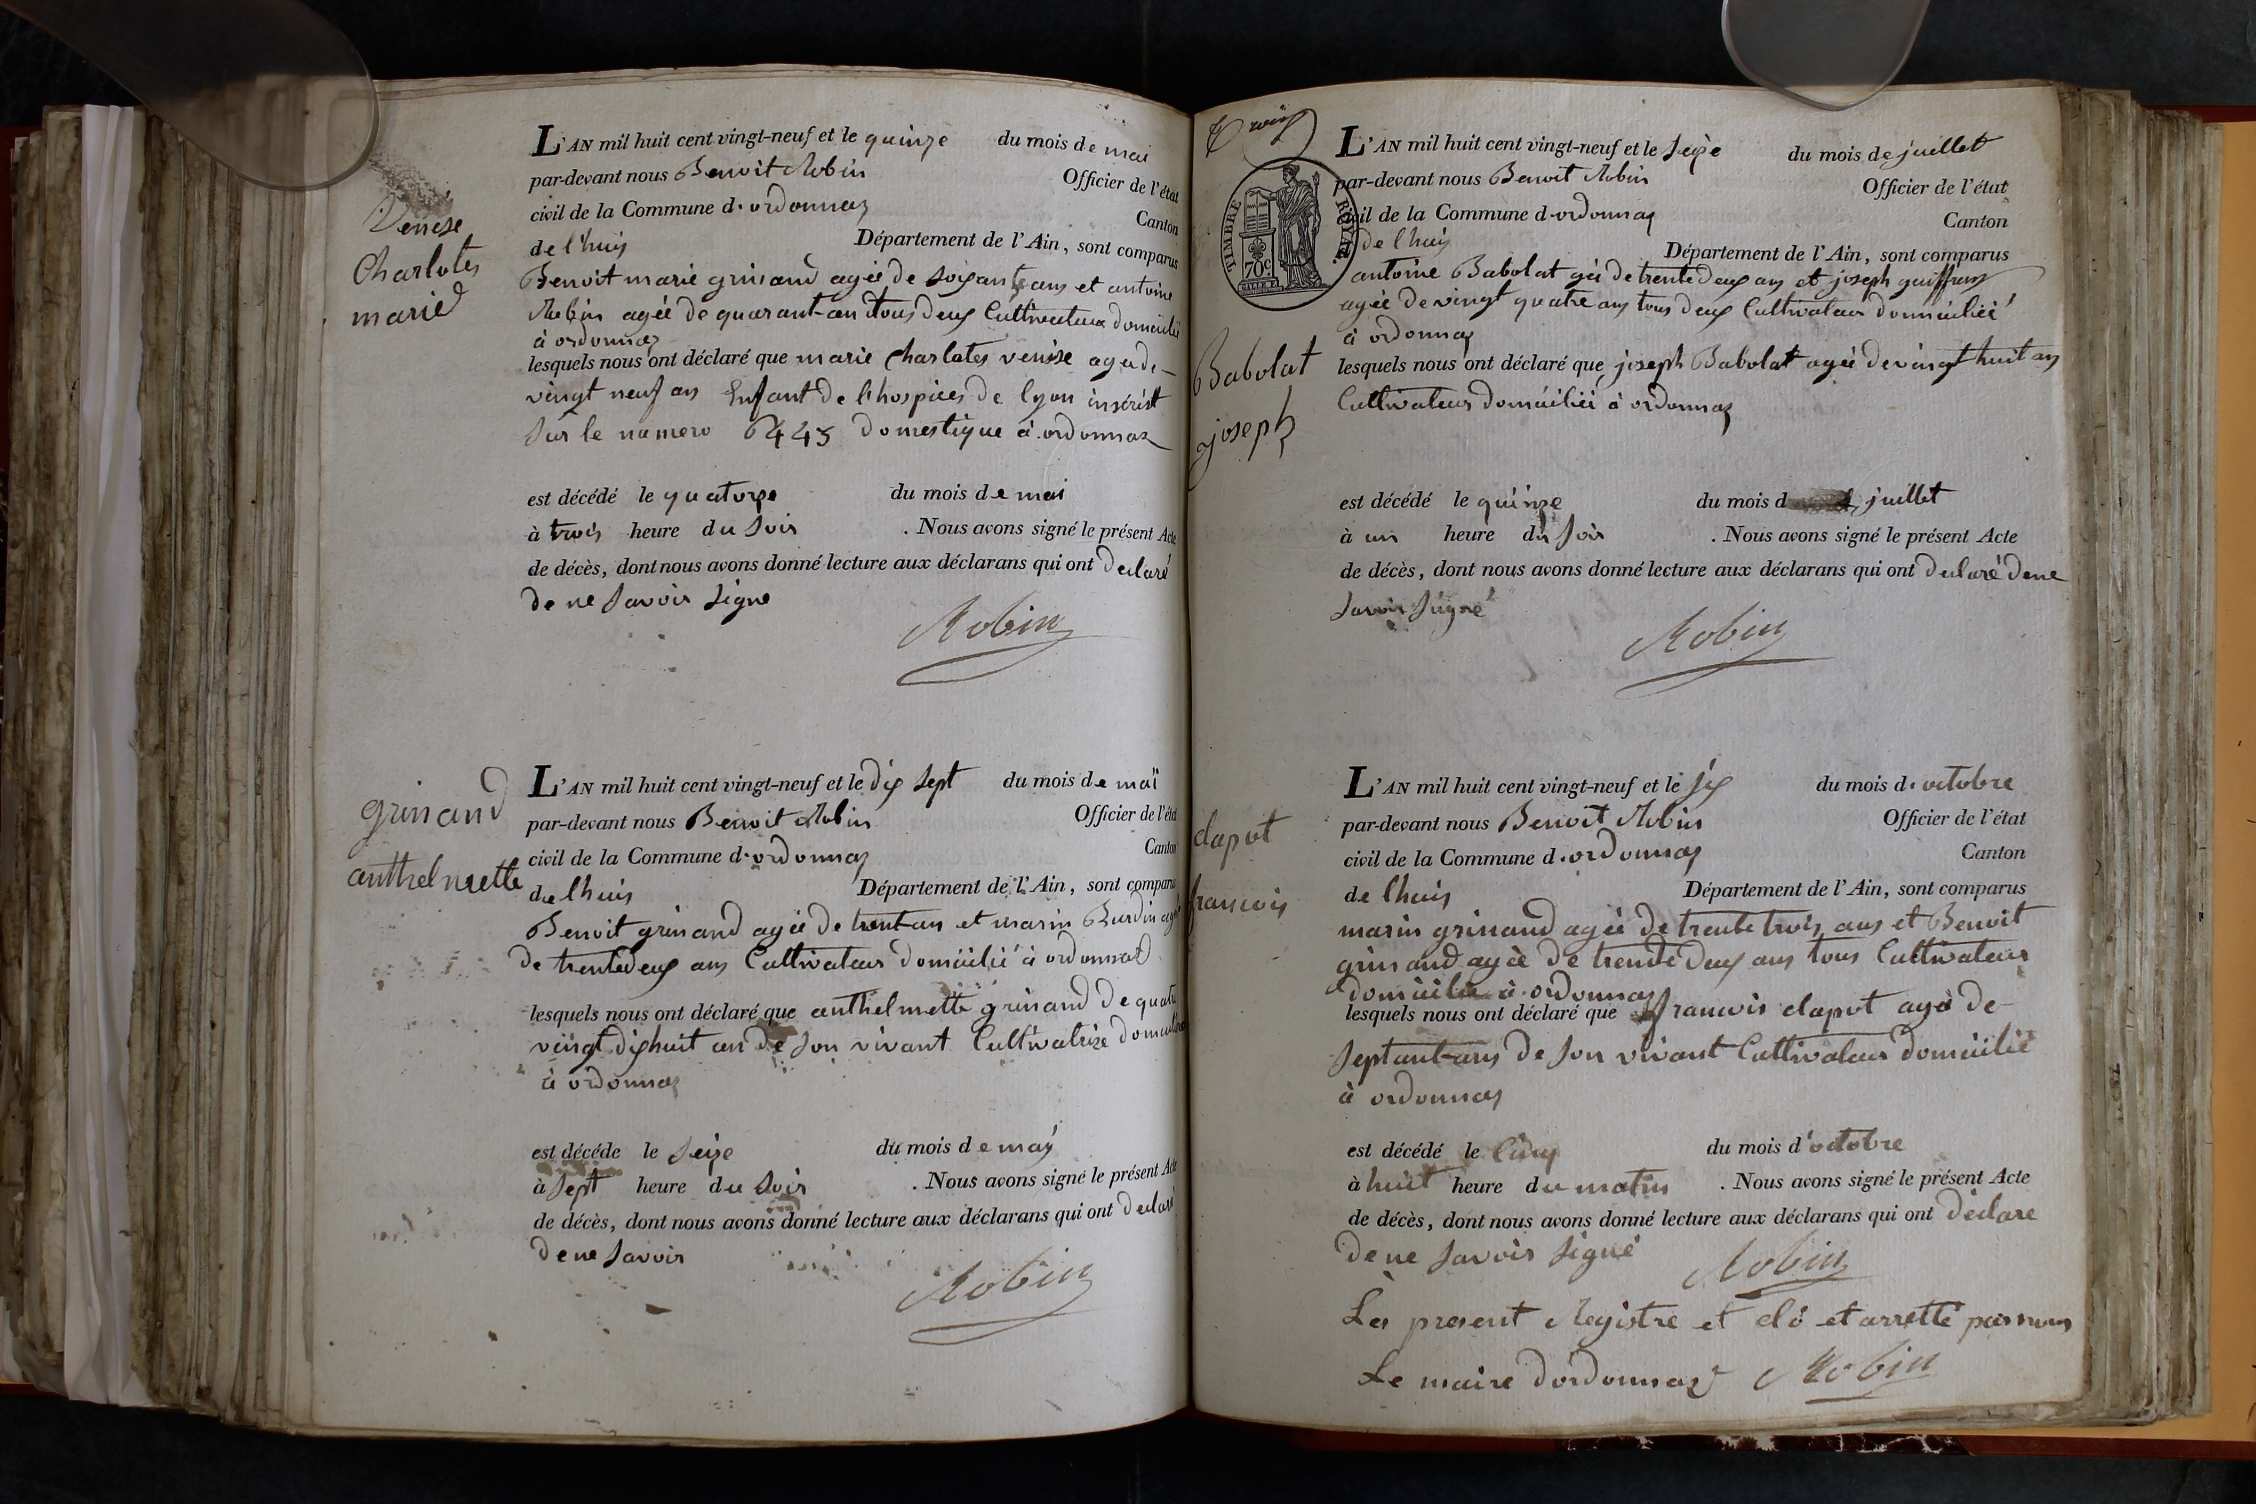 Venese
Charlotes
marie
L'AN mil huit cent vingt-neuf et le quinze du mois de mai
par-devant nous Benoit Robin Officier de l'état
civil de la Commune d. ordonnaz Canton
de l'huis Département de l'Ain, sont comparus
Benoit marie grinand agée de soixant ans et antoine
Robin agée de quarant-an tous deux Cultivateur domicilié
à ordonnaz
lesquels nous ont déclaré que marie Charlotes venise age de
vingt neuf ans Enfant de l'hospices de lyon insérist
Sur le numero 6445 domestique à ordonnaz
est décédé le quatorze du mois de mai
à trois heure du Soir . Nous avons signé le présent Acte
de décès, dont nous avons donné lecture aux déclarans qui ont declaré
de ne Savoir Signe
Robin
grinand
anthelmette
L'AN mil huit cent vingt-neuf et le dix Sept du mois de maï
par-devant nous Benoit Robin Officier de l'état
civil de la Commune d. ordonnaz Canton
de lhuis Département de l'Ain, sont comparus
Benoit grinand agée de trent-an et marin Burdin agé
de trentedeux ans Cultivateur domicilié à ordonnad
lesquels nous ont déclaré que anthelmette grinand de quatre
vingt dixhuit an de Son vivant Cultivatrize
à ordonnaz
est décédé le Seize du mois de may
à Sept heure du Soir . Nous avons signé le présent Acte
de décès, dont nous avons donné lecture aux déclarans qui ont declaré
de ne Savoir
Robin
Trois
TIMBRE ROYAL
70c
Babolat
joseph
L'AN mil huit cent vingt-neuf et le Seize du mois de juillet
par-devant nous Benoit Robin Officier de l'état
civil de la Commune d. ordonnaz Canton
de lhuis Département de l'Ain, sont comparus
antoine Babolat gé de trente deux ans et joseph
agée de vingt quatre ans tous deux Cultivateur domicilié
à ordonnaz
lesquels nous ont déclaré que joseph Babolat agée de vingt huit ans
Cultivateur domicilié à ordonnaz
est décédé le quinze du mois d juillet
à un heure du Soir . Nous avons signé le présent Acte
de décès, dont nous avons donné lecture aux déclarans qui ont declaré de ne
Savoir Signé
Robin
clapot
francois
L'AN mil huit cent vingt-neuf et le Six du mois d. octobre
par-devant nous Benoit Robin Officier de l'état
civil de la Commune d. ordonnaz Canton
de lhuis Département de l'Ain, sont comparus
marin grinand agée de trente trois ans et Benoit
grinand agée de trente deux ans tous Cultivateur
domicilie à ordonnaz
lesquels nous ont déclaré que francois clapot agé de
Septant-ans de Son vivant Cultivateur domicilié
à ordonnaz
est décédé le Cinq du mois d'octobre
à huit heure du matin . Nous avons signé le présent Acte
de décès, dont nous avons donné lecture aux déclarans qui ont déclare
de ne Savoir Signé
Robin
Les present Registre et clô et arretté par nous
Le maire d'ordonnaz Robin